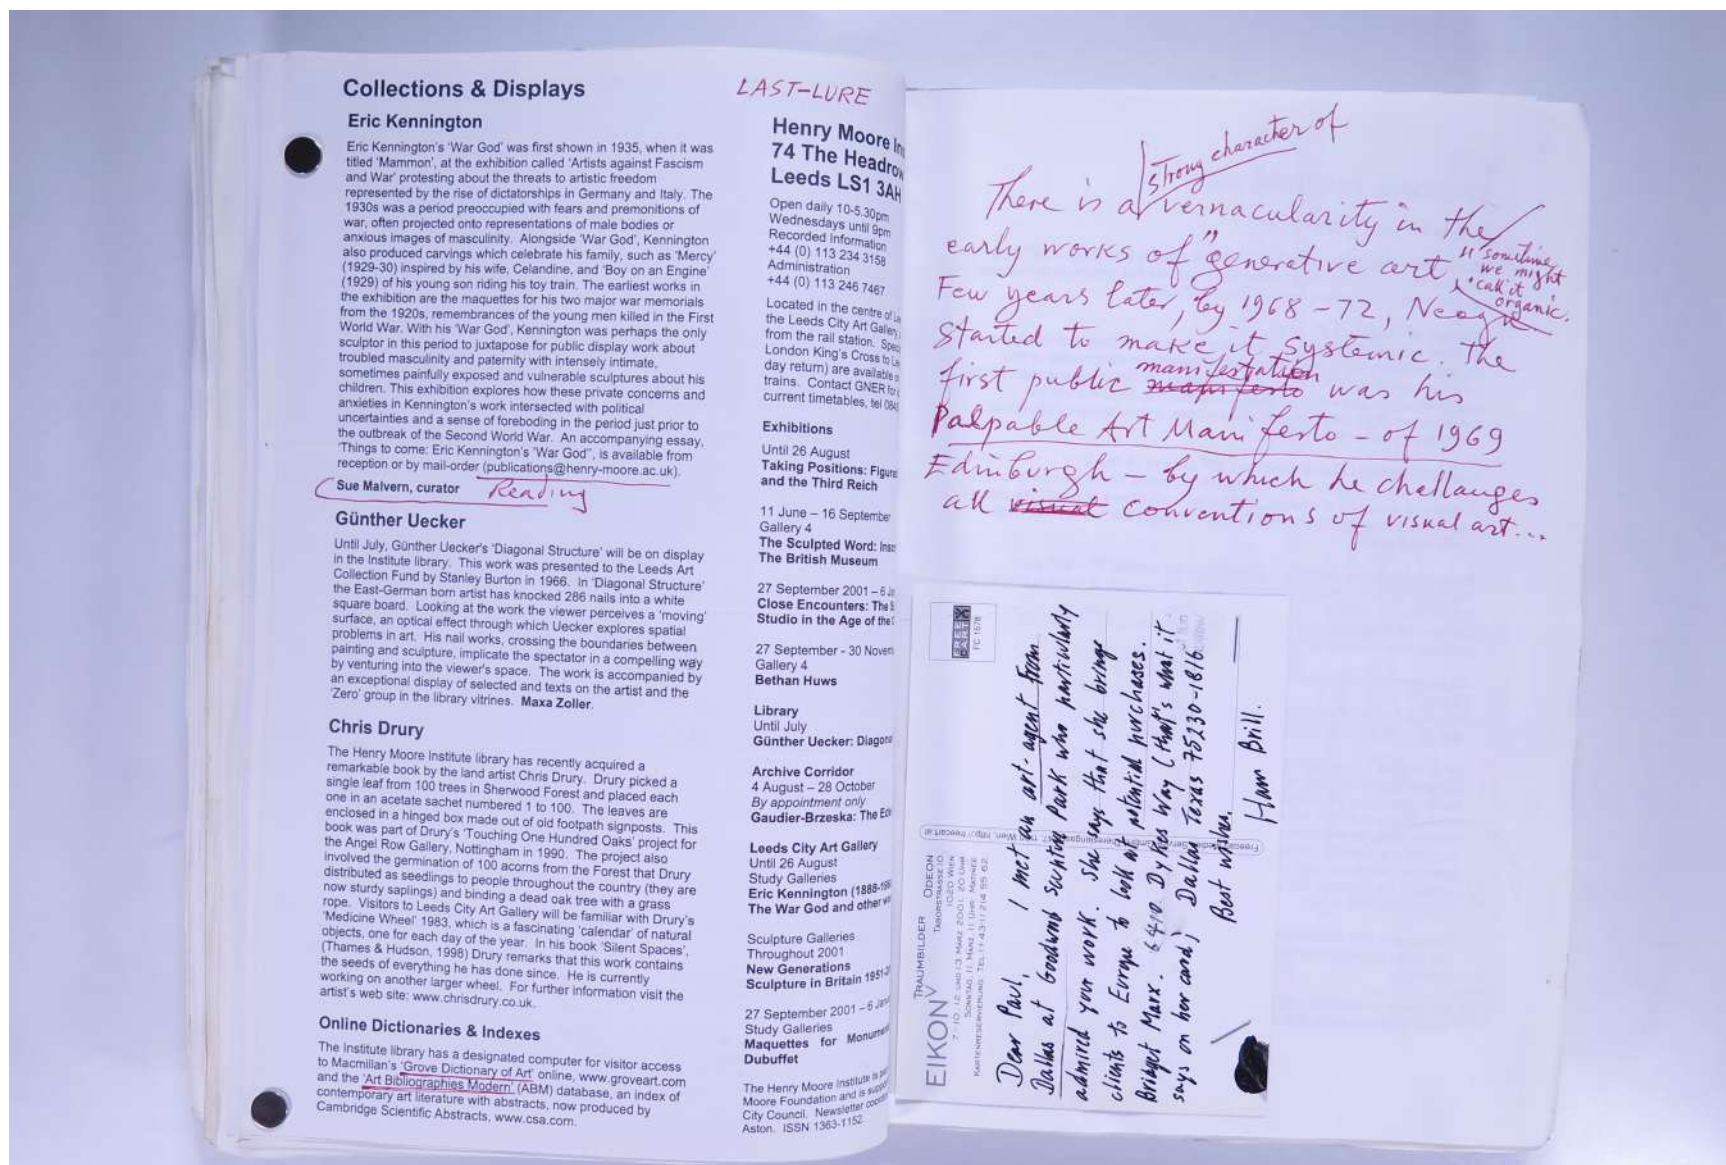 Collections & Displays
Eric Kennington
Eric Kennington's 'War God' was first shown in 1935, when it was
titled 'Mammon', at the exhibition called 'Artists against Fascism
and War' protesting about the threats to artistic freedom
represented by the rise of dictatorships in Germany and Italy. The
1930s was a period preoccupied with fears and premonitions of
war, often projected onto representations of male bodies or
anxious images of masculinity. Alongside 'War God', Kennington
also produced carvings which celebrate his family, such as 'Mercy'
(1929-30) inspired by his wife, Celandine, and 'Boy on an Engine'
(1929) of his young son riding his toy train. The earliest works in
the exhibition are the maquettes for his two major war memorials
from the 1920s, remembrances of the young men killed in the First
World War. With his 'War God', Kennington was perhaps the only
sculptor in this period to juxtapose for public display work about
troubled masculinity and paternity with intensely intimate,
sometimes painfully exposed and vulnerable sculptures about his
children. This exhibition explores how these private concerns and
anxieties in Kennington's work intersected with political
uncertainties and a sense of foreboding in the period just prior to
the outbreak of the Second World War. An accompanying essay,
'Things to come: Eric Kennington's 'War God'', is available from
reception or by mail-order (publications@henry-moore.ac.uk).
Sue Malvern, curator Reading
Günther Uecker
Until July, Günther Uecker's 'Diagonal Structure' will be on display
in the Institute library. This work was presented to the Leeds Art
Collection Fund by Stanley Burton in 1966. In 'Diagonal Structure'
the East-German born artist has knocked 286 nails into a white
square board. Looking at the work the viewer perceives a 'moving'
surface, an optical effect through which Uecker explores spatial
problems in art. His nail works, crossing the boundaries between
painting and sculpture, implicate the spectator in a compelling way
by venturing into the viewer's space. The work is accompanied by
an exceptional display of selected and texts on the artist and the
'Zero' group in the library vitrines. Maxa Zoller.
Chris Drury
The Henry Moore Institute library has recently acquired a
remarkable book by the land artist Chris Drury. Drury picked a
single leaf from 100 trees in Sherwood Forest and placed each
one in an acetate sachet numbered 1 to 100. The leaves are
enclosed in a hinged box made out of old footpath signposts. This
book was part of Drury's 'Touching One Hundred Oaks' project for
the Angel Row Gallery, Nottingham in 1990. The project also
involved the germination of 100 acorns from the Forest that Drury
distributed as seedlings to people throughout the country (they are
now sturdy saplings) and binding a dead oak tree with a grass
rope. Visitors to Leeds City Art Gallery will be familiar with Drury's
'Medicine Wheel' 1983, which is a fascinating 'calendar' of natural
objects, one for each day of the year. In his book 'Silent Spaces',
(Thames & Hudson, 1998) Drury remarks that this work contains
the seeds of everything he has done since. He is currently
working on another larger wheel. For further information visit the
artist's web site: www.chrisdrury.co.uk.
Online Dictionaries & Indexes
The Institute library has a designated computer for visitor access
to Macmillan's 'Grove Dictionary of Art' online, www.groveart.com
and the 'Art Bibliographies Modern' (ABM) database, an index of
contemporary art literature with abstracts, now produced by
Cambridge Scientific Abstracts, www.csa.com.
LAST-LURE
Henry Moore
74 The Headrow
Leeds LS1 3AH
Open daily 10-5.30pm
Wednesdays until 9pm
Recorded Information
+44 (0) 113 234 3158
Administration
+44 (0) 113 246 7467
Located in the centre of
the Leeds City Art Gallery
from the rail station.
London King's Cross to
day return) are available
trains. Contact GNER for
current timetables, tel
Exhibitions
Until 26 August
Taking Positions:
and the Third Reich
11 June – 16 September
Gallery 4
The Sculpted Word:
The British Museum
27 September 2001 – 6
Close Encounters: The
Studio in the Age of the
27 September - 30
Gallery 4
Bethan Huws
Library
Until July
Günther Uecker:
Archive Corridor
4 August – 28 October
By appointment only
Gaudier-Brzeska: The
Leeds City Art Gallery
Until 26 August
Study Galleries
Eric Kennington
The War God and other
Sculpture Galleries
Throughout 2001
New Generations
Sculpture in Britain
27 September 2001 – 6
Study Galleries
Maquettes for
Dubuffet
The Henry Moore Institute is
Moore Foundation and is
City Council. Newsletter
Aston. ISSN 1363-1152.
strong character of
There is a vernacularity in the
early works of "generative art" sometime
we might
call it
organic.
Few years later, by 1968-72, Neagu
started to make it systemic. The
manifestation
first public manifesto was his
Palpable Art Manifesto – of 1969
Edinburgh – by which he challanges
all visual conventions of visual art...
FREE CART
FC 1578
EIKON
TRAUMBILDER
ODEON
TABORSTRASSE 10
1020 WIEN
Dear Paul, I met an art-agent from
Dallas at Goodwood Sculpture Park who particularly
admired your work. She says that she brings
clients to Europe to look at potential purchases.
Bridget Marx. 6410 Dykes Way (that's what it
says on her card) Dallas Texas 75230-1816.
Best wishes,
Ham Brill.